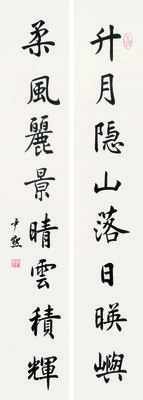 升月隐山落日暎嶼
柔風麗景晴雲積輝